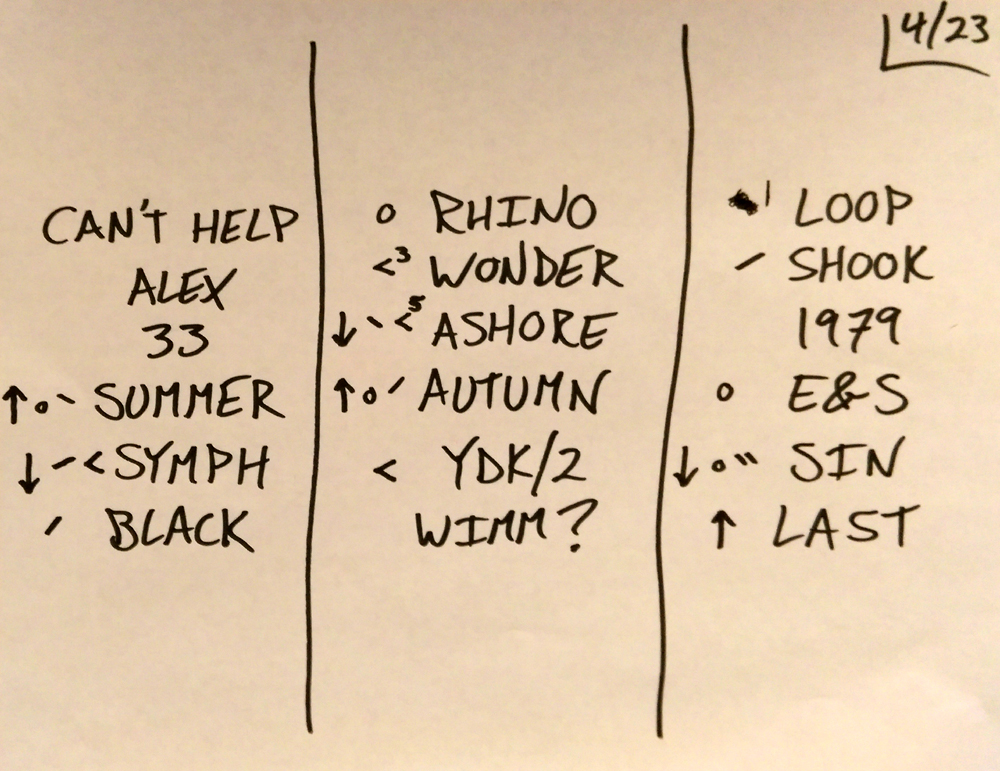 4/23
CAN'T HELP
ALEX
33
↑ o ` SUMMER
↓ - < SYMPH
/ BLACK
o RHINO
<3 WONDER
↓ ` <5 ASHORE
↑ o / AUTUMN
< YDK/2
WIMM?
' LOOP
/ SHOOK
1979
o E&S
↓ o " SIN
↑ LAST